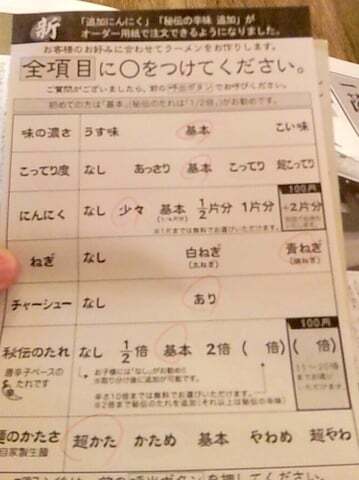 新 「追加にんにく」「秘伝の辛味 追加」が
オーダー用紙で注文できるようになりました。
お客様のお好みに合わせてラーメンをお作りします。
全項目に○をつけてください。
ご質問がございましたら、前の呼出ボタンでお呼びください。
初めての方は「基本」(秘伝のたれは「1/2倍」)がお勧めです。
味の濃さ うす味 基本 こい味
こってり度 なし あっさり 基本 こってり 超こってり
100円
にんにく なし 少々 基本 1/2片分 1片分 +2片分
(1/4片分)
※1片までは無料でお選びいただけます。
ねぎ なし 白ねぎ 青ねぎ
(太ねぎ) (細ねぎ)
チャーシュー なし あり
100円
秘伝のたれ なし 1/2倍 基本 2倍 ( 倍) ( 倍)
唐辛子ベースの
たれです
お子様には「なし」がお勧め!!
※取り分け後に追加が可能です。
辛さ10倍までは無料でお選びいただけます。
※2倍まで秘伝のたれを追加(それ以上は秘伝の辛味)
11~20倍
までお選び
いただけます
麺のかたさ 超かた かため 基本 やわめ 超やわ
自家製生麺